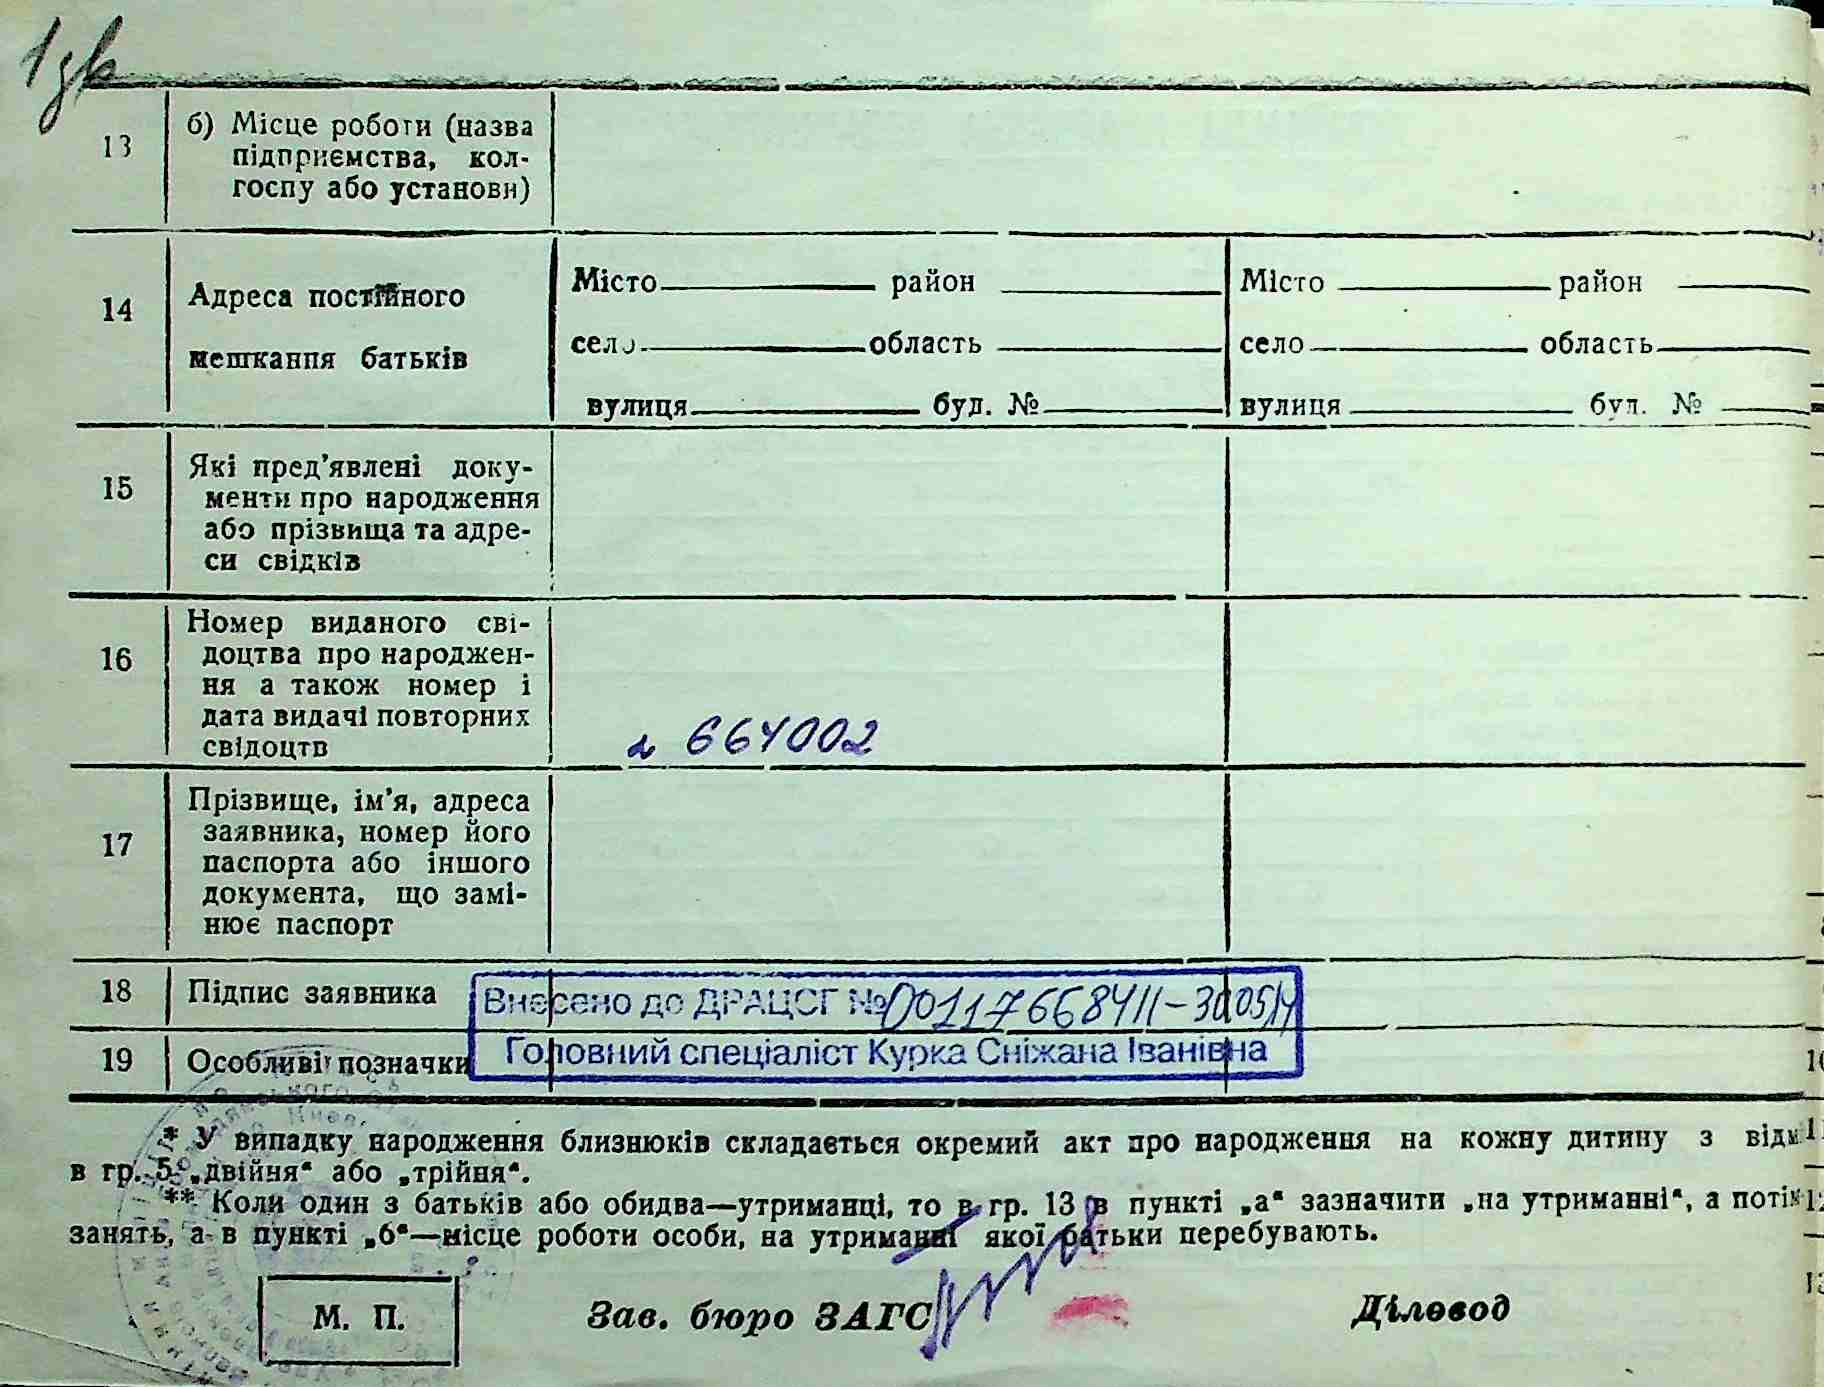 13 б) Місце роботи (назва
підприємства, кол-
госпу або установи)
14 Адреса постійного
мешкання батьків
Місто район Місто район
село область село область
вулиця буд. № вулиця буд. №
15 Які пред’явлені доку-
менти про народження
або прізвища та адре-
си свідків
16 Номер виданого сві-
доцтва про народжен-
ня а також номер і
дата видачі повторних
свідоцтв
664002
17 Прізвище, ім’я, адреса
заявника, номер його
паспорта або іншого
документа, що замі-
нює паспорт
18 Підпис заявника
Внесено до ДРАЦСГ №00117668411-30.05.14
Головний спеціаліст Курка Сніжана Іванівна
19 Особливі позначки
* У випадку народження близнюків складається окремий акт про народження на кожну дитину з відм
в гр. 5 „двійня“ або „трійня“.
** Коли один з батьків або обидва—утриманці, то в гр. 13 в пункті „а“ зазначити „на утриманні“, а потім
занять, а в пункті „б“—місце роботи особи, на утриманні якої батьки перебувають.
М. П. Зав. бюро ЗАГС Діловод